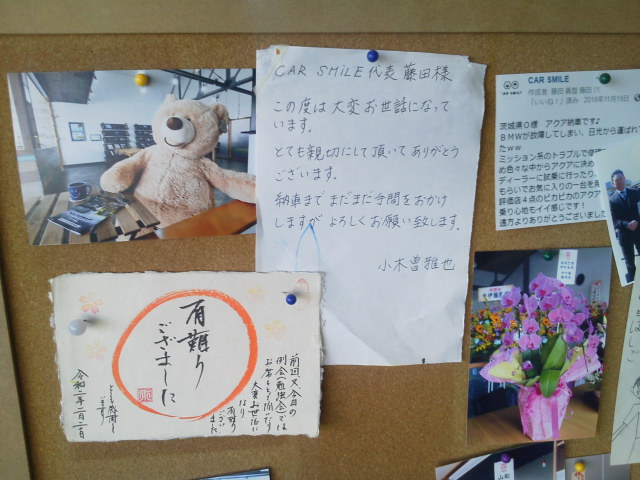 CAR SMiLE 代表 藤田様
この度は大変お世話になって
います。
とても親切にして頂いてありがとう
ございます。
納車までまだまだ手間をおかけ
しますが よろしくお願い致します。
小木曽雅也
CAR SMILE
作成者: 藤田
「いいね！」済み 2018年11月19日
茨城県O様 アクア納車です♪
BMWが故障してしまい、日光から運ばれ
たww
ミッション系のトラブルで
め色々な中からアクアに決め
ディーラーに試乗に行ったり、
もらいでお気に入りの一台を見
評価店4点のピカピカのアクア
乗り心地もイイ感じです！
遠方よりありがとうございました
有難う
ございました
前回、又、今回の
例会(勉強会)では
お席を
大変お世話に
なり
有難う
ござい
ました
令和二年二月二日